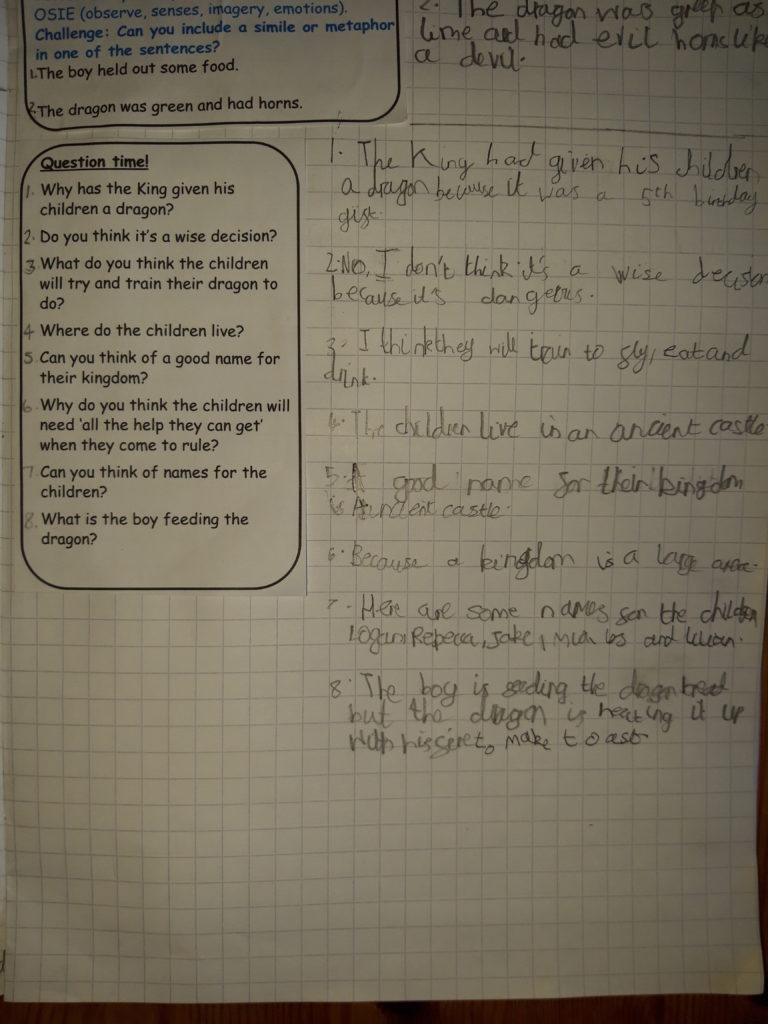 OSIE (observe, senses, imagery, emotions).
Challenge: Can you include a simile or metaphor
in one of the sentences?
1. The boy held out some food.
2. The dragon was green and had horns.
2. The dragon was green as
lime and had evil horns like
a devil.
Question time!
1. Why has the King given his
children a dragon?
2. Do you think it's a wise decision?
3 What do you think the children
will try and train their dragon to
do?
4 Where do the children live?
5 Can you think of a good name for
their kingdom?
6 Why do you think the children will
need 'all the help they can get'
when they come to rule?
7 Can you think of names for the
children?
8. What is the boy feeding the
dragon?
1. The King had given his children
a dragon because it was a 5th birthday
gift.
2. No, I don't think it's a wise decison
because it's dangerus.
3. I think they will train to fly, eat and
drink.
4. The children live in an ancient castle
5. A good name for their kingdom
is Ancient castle.
6. Because a kingdom is a large
7. Here are some names for the children
Logan, Repecca, Jake, and
8. The boy is feeding the dragon bread
but the dragon is heating it up
with his make toast